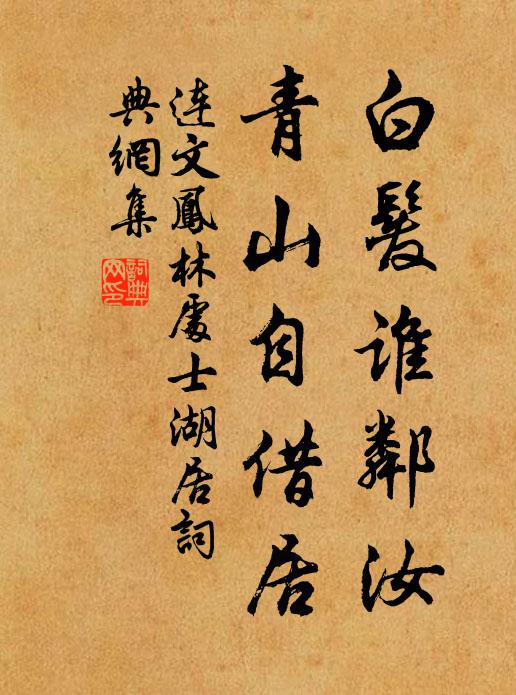 白髮誰鄰汝
青山自借居
連文鳳林處士湖居詞
典網集
詞典網印